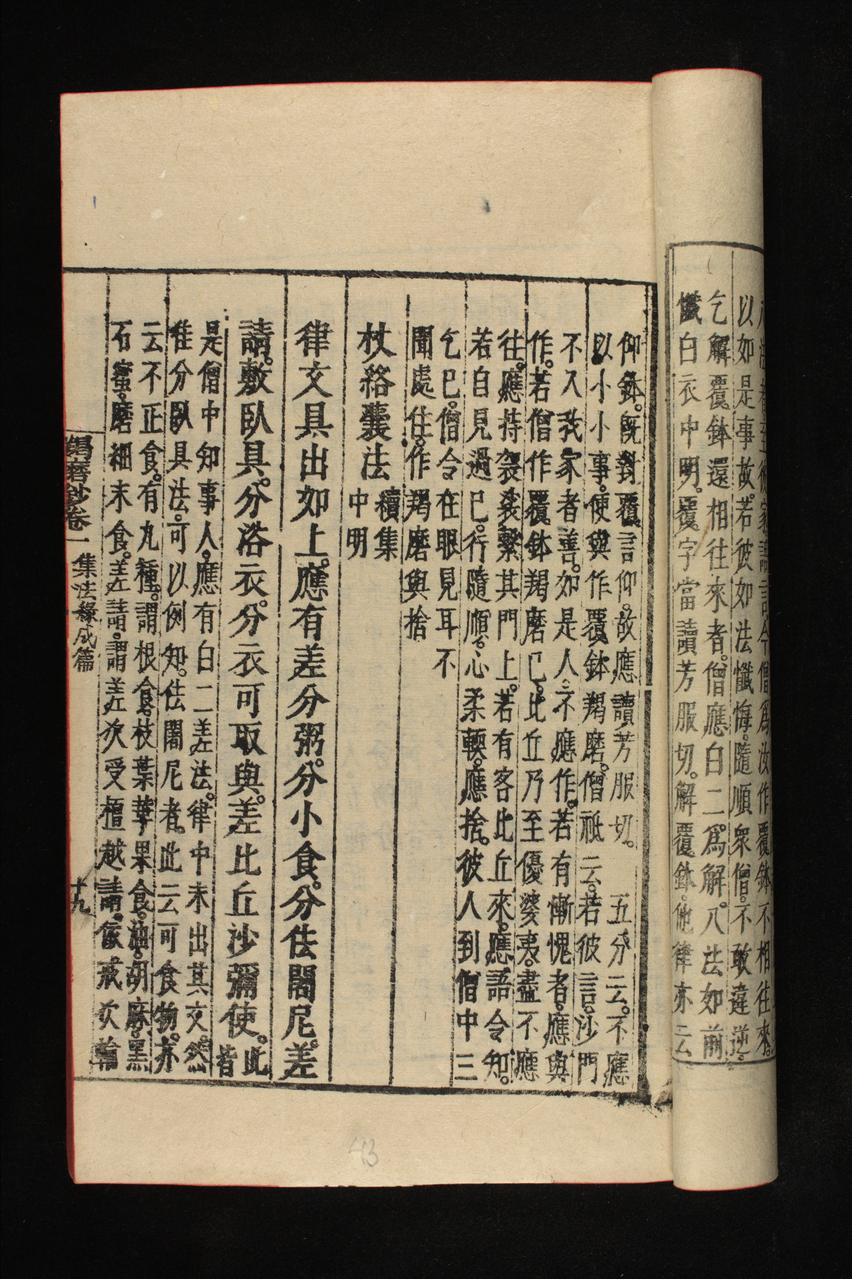 以如是事故。若彼如法懺悔。隨順衆僧。不敢違逆。
乞解覆鉢還相往來者。僧應白二爲解。八法如前
懺白衣中明。覆字當讀芳服切。解覆鉢。他律亦云
仰鉢。旣對覆言仰。故應讀芳服切。 五分云。不應
以小小事。便與作覆鉢羯磨。僧祇云。若彼言。沙門
不入我家者善。如是人。不應作。若有慚愧者。應與
作。若僧作覆鉢羯磨已。比丘乃至優婆夷。盡不應
往。應持袈裟繫其門上。若有客比丘來。應語令知。
若自見過已。行隨順。心柔輭。應捨。彼人到僧中三
乞已。僧令在眼見耳不
聞處住。作羯磨與捨
杖絡囊法續集中明
律文具出如上。應有差分粥。分小食。分佉闍尼。差
請。敷臥具。分浴衣。分衣可取與。差比丘沙彌使。此皆
是僧中知事人。應有白二差法。律中未出其文。然
惟分臥具法。可以例知。佉闍尼者。此云可食物。亦
云不正食。有九種。謂根食。枝葉華果食。油。胡麻。黑
石蜜。磨細末食。差請。謂差次受檀越請。依戒次輪
羯磨鈔卷一 集法緣成篇 十九
43